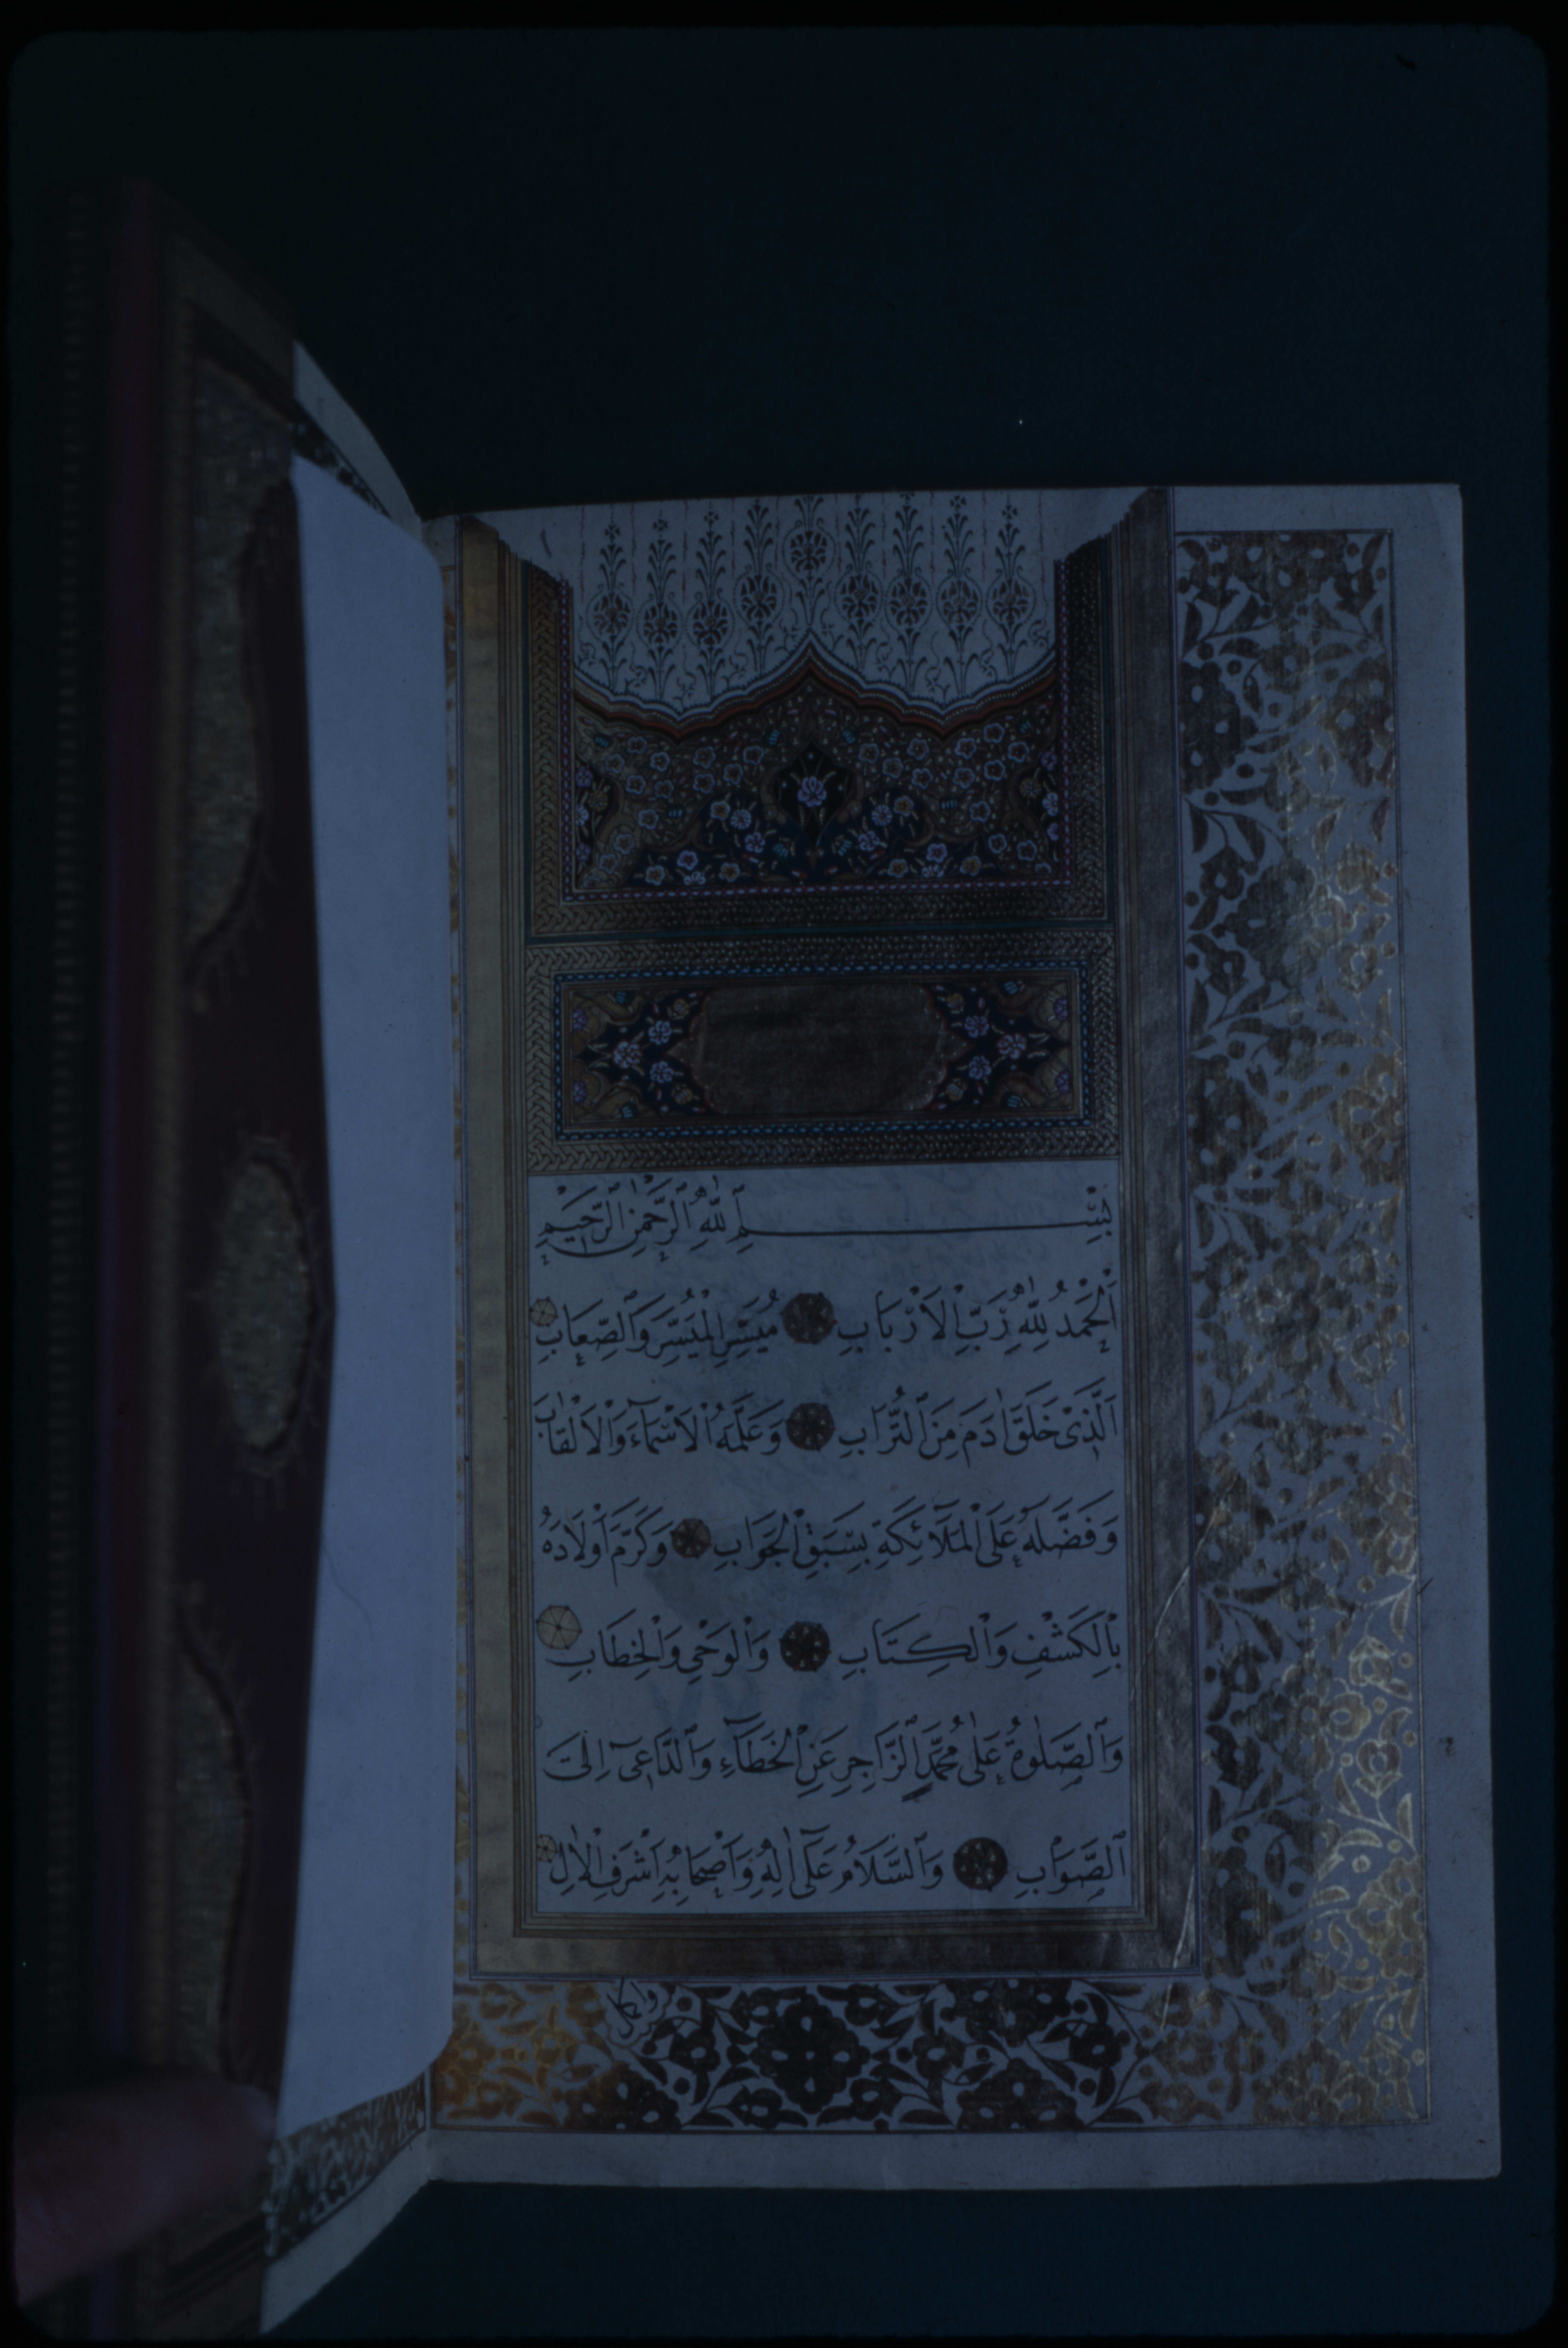 بِسْمِ اللّٰهِ الرَّحْمٰنِ الرَّحِيمِ
اَلْحَمْدُ لِلّٰهِ رَبِّ الْاَرْبَابِ مُيَسِّرِ الْمُيَسَّرِ وَالصِّعَابِ
اَلَّذِى خَلَقَ اٰدَمَ مِنَ التُّرَابِ وَعَلَّمَهُ الْاَسْمَاءَ وَالْاَلْقَابَ
وَفَضَّلَهُ عَلَى الْمَلَآئِكَةِ بِسَبَقِ الْجَوَابِ وَكَرَّمَ اَوْلَادَهُ
بِالْكَشْفِ وَالْكِتَابِ وَالْوَحْىِ وَالْخِطَابِ
وَالصَّلٰوةُ عَلٰى مُحَمَّدٍ الزَّاجِرِ عَنِ الْخَطَآءِ وَالدَّاعِىٓ اِلَى
الصَّوَابِ وَالسَّلَامُ عَلٰٓى اٰلِهِ وَاَصْحَابِهِ اَشْرَفِ الْاٰلِ